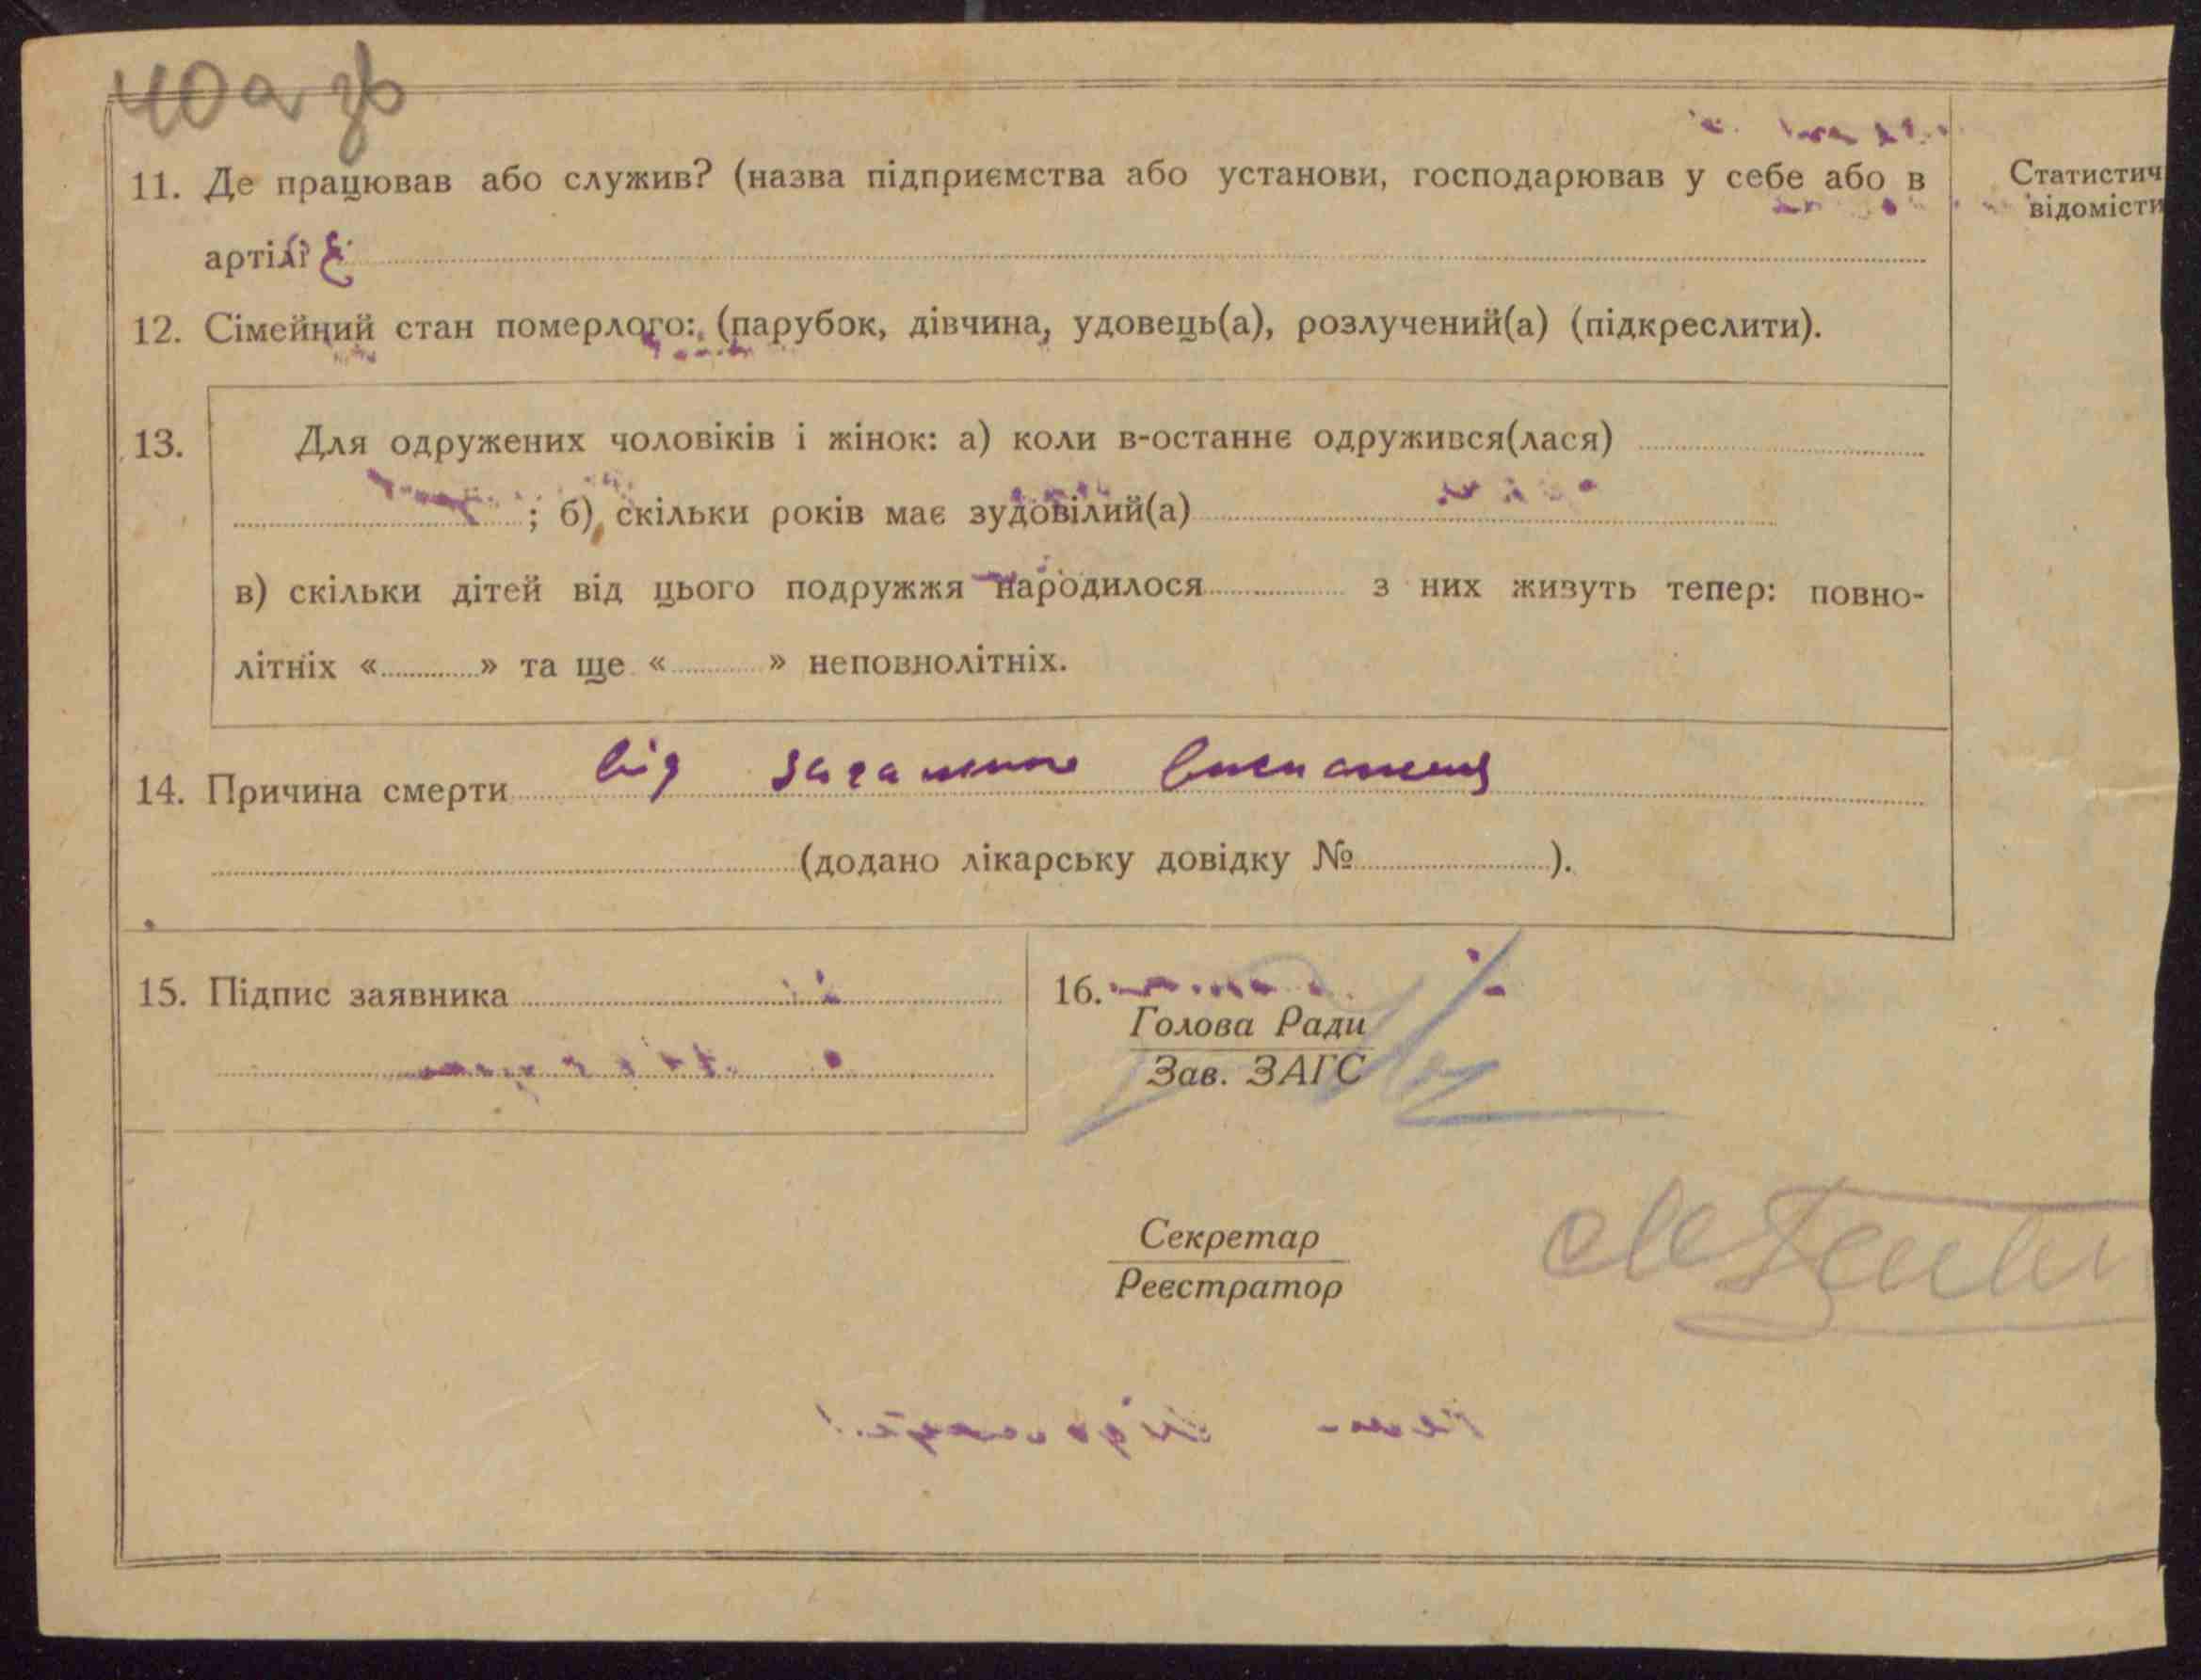 40 а зв
11. Де працював або служив? (назва підприємства або установи, господарював у себе або в
артілі)
Статистич
відомісти
12. Сімейний стан померлого: (парубок, дівчина, удовець(а), розлучений(а) (підкреслити).
13. Для одружених чоловіків і жінок: а) коли в-останнє одружився(лася)
; б) скільки років має зудовілий(а)
в) скільки дітей від цього подружжя народилося з них живуть тепер: повно-
літніх « » та ще « » неповнолітніх.
14. Причина смерти від загального виснаження
(додано лікарську довідку № ).
15. Підпис заявника
16.
Голова Ради
Зав. ЗАГС
Секретар
Реєстратор